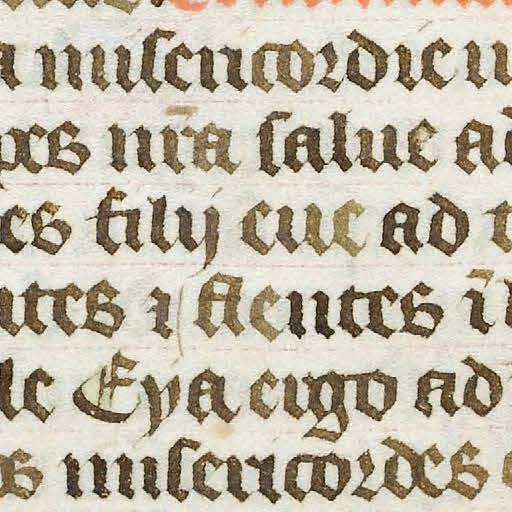 misericordie
pes nr̄a salue ad
es filij eue ad
ntes ⁊ flentes ī
Eya ergo ad
misericordes